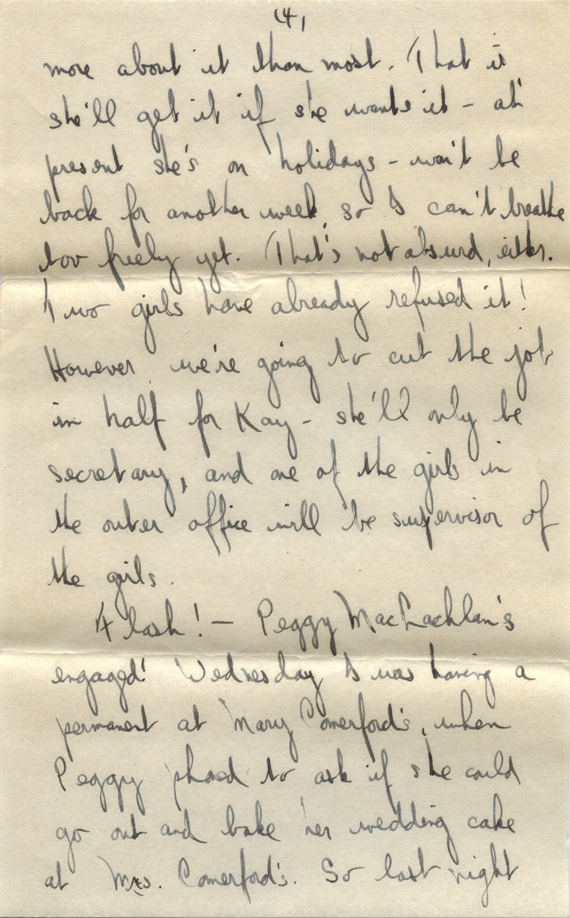 (4)
more about it than most. (That is
she'll get it if she wants it - at
present she's on holidays - won't be
back for another week, so I can't breathe
too freely yet. (That's not absurd, either.
Two girls have already refused it!
However, we're going to cut the job
in half for Kay - she'll only be
secretary, and one of the girls in
the outer office will be supervisor of
the girls.
Flash! - Peggy MacLachlan's
engaged! Wednesday I was having a
permanent at Mary Comerford's, when
Peggy phoned to ask if she could
go out and bake her wedding cake
at Mrs. Comerford's. So last night